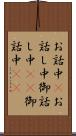 お話中
お話し中御話
し中御
話中